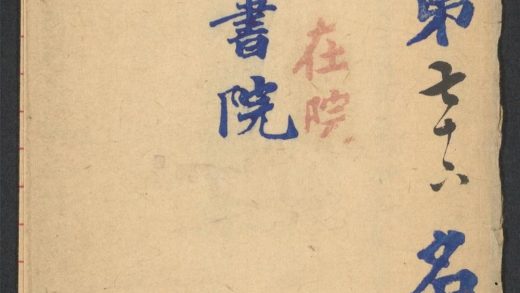 第七十六名
在院
書院